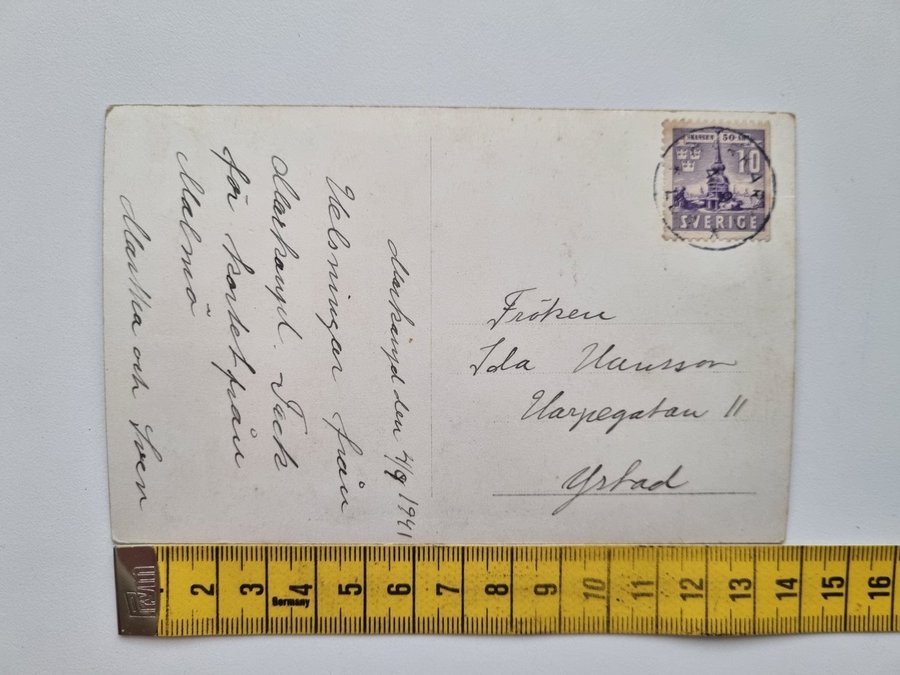 Markaryd den 4/9 1941
Helsningar från
Markaryd. Tack
för kortet från
Malmö
Martha och Sven
SKANSEN 50 ÅR
10
SVERIGE
Fröken
Ida Hansson
Harpegatan 11
Ystad
2 3 4 5 6 7 8 9 10 11 12 13 14 15 16
Germany